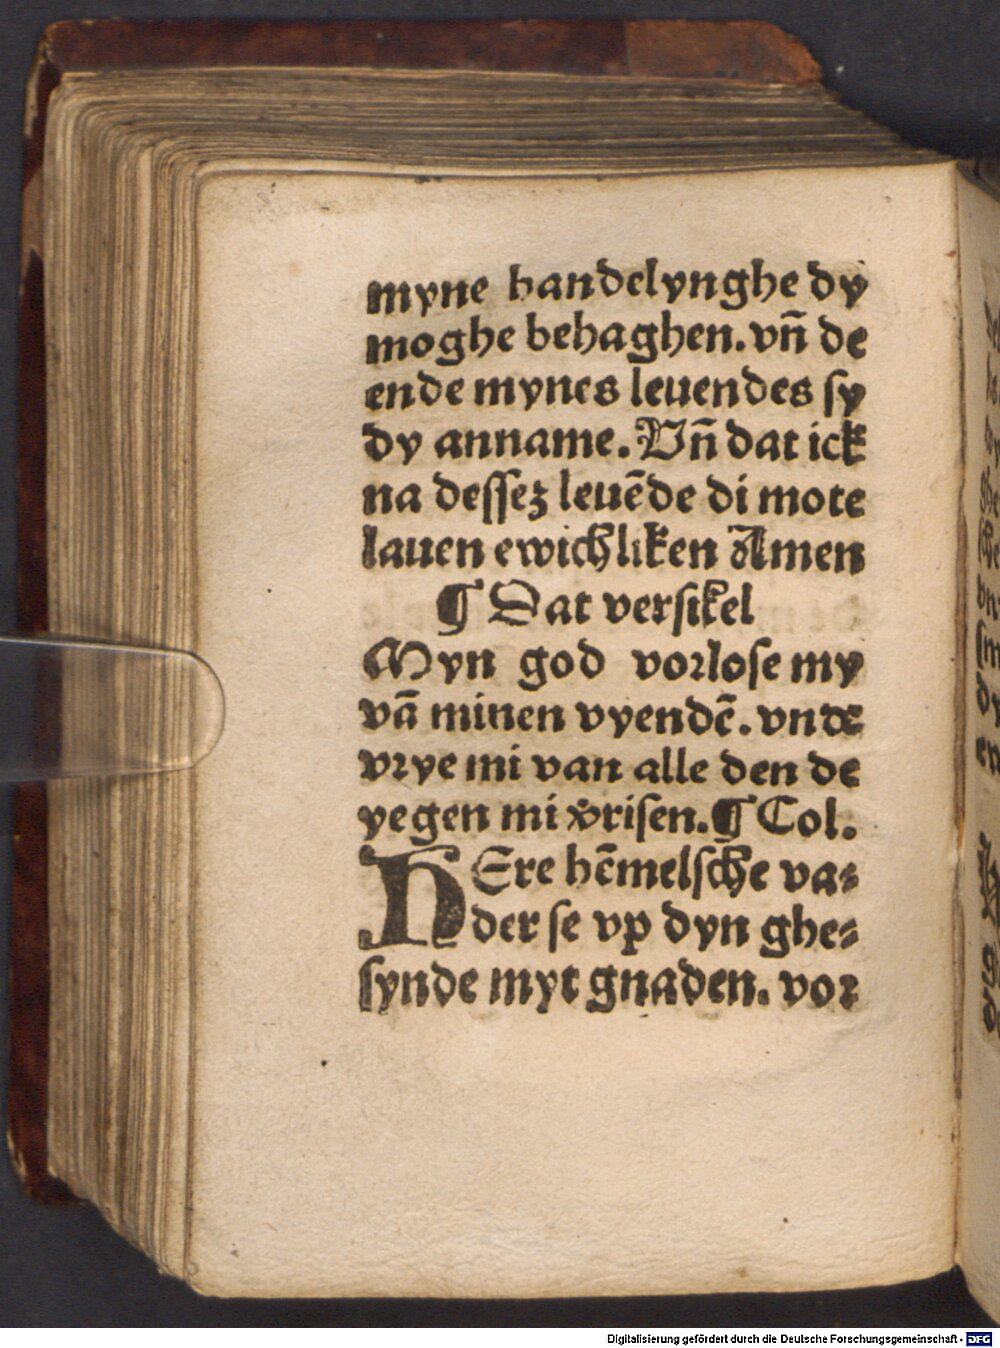 myne handelynghe dy
moghe behaghen. vn̄ de
ende mynes leuendes sy
dy anname. Vn̄ dat ick
na dessez leuēde di mote
lauen ewichliken Amen
¶ Dat versikel
Myn god vorlose my
vā minen vyendē. vnde
vrye mi van alle den de
yegen mi v̆risen. ¶ Col.
HEre hēmelsche va⸗
der se vp dyn ghe⸗
synde myt gnaden. vor
Digitalisierung gefördert durch die Deutsche Forschungsgemeinschaft - DFG